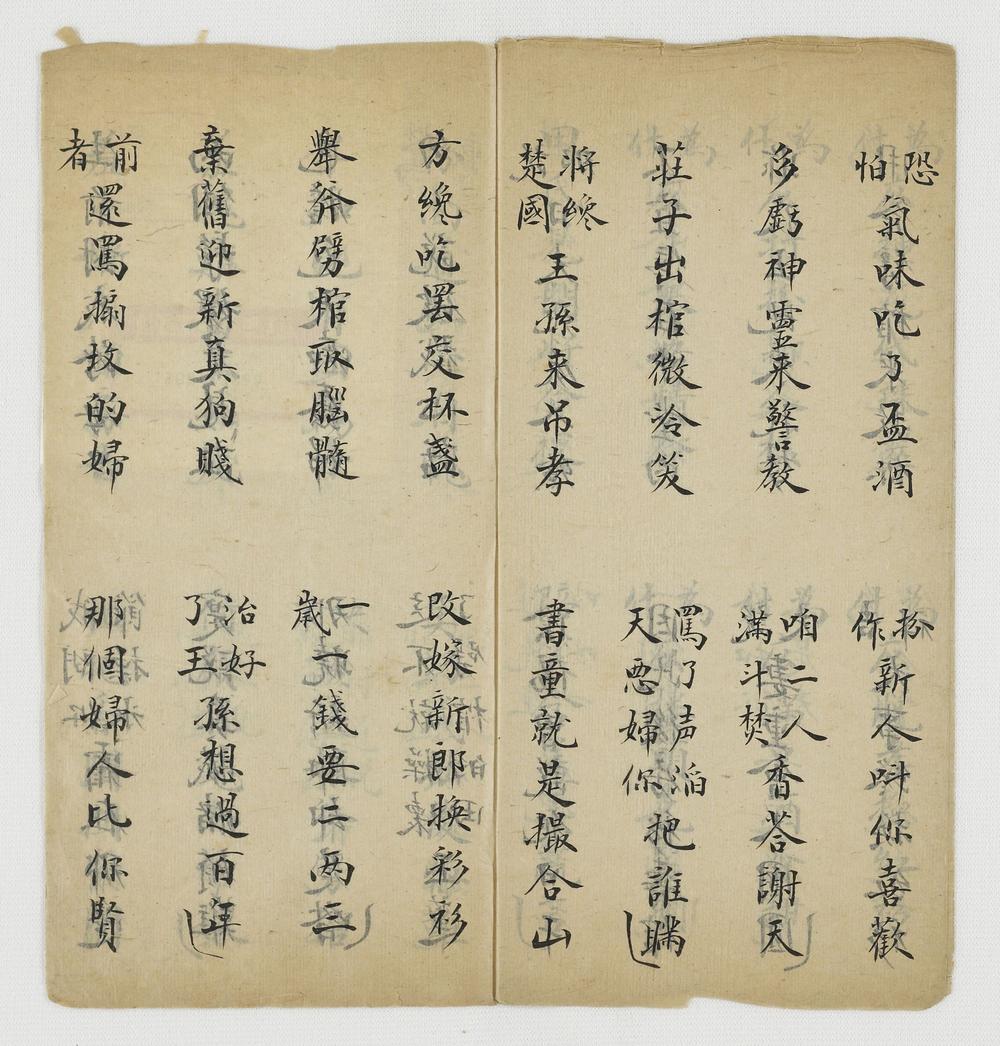 恐怕氣味吃了盃酒
扮作新人呌你喜歡
多虧神靈来警教
咱二人滿斗焚香荅謝天
莊子出棺微冷笑
罵了声滔天惡婦你把誰瞞
將纔楚國王孫来吊孝
書童就是撮合山
方纔吃罢交杯盞
改嫁新郎換彩衫
舉斧劈棺取腦髓
一歲一錢要二两三
棄舊迎新真狗賤
治好了王孫想過百年
前者還罵搧坟的婦
那個婦人比你賢